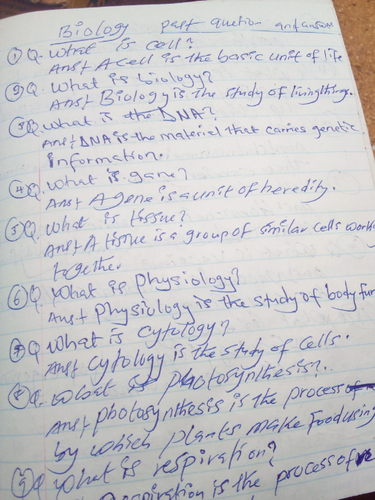 Biology past question and answer
① Q. What is cell?
Ans+ A cell is the basic unit of life
② Q. What is biology?
Ans+ Biology is the study of livingthings.
③ Q. What is the DNA?
Ans+ DNA is the material that carries genetic
information.
④ Q. What is gane?
Ans+ A gene is a unit of heredity.
⑤ Q. What is tissue?
Ans+ A tissue is a group of similar cells working
together
⑥ Q. What is physiology?
Ans+ physiology is the study of body fun
⑦ Q. What is cytology?
Ans+ cytology is the study of cells.
⑧ Q. What is photosynthesis?.
Ans+ photosynthesis is the process
by which plants make food using
⑨ Q What is respiration?
respiration is the process of